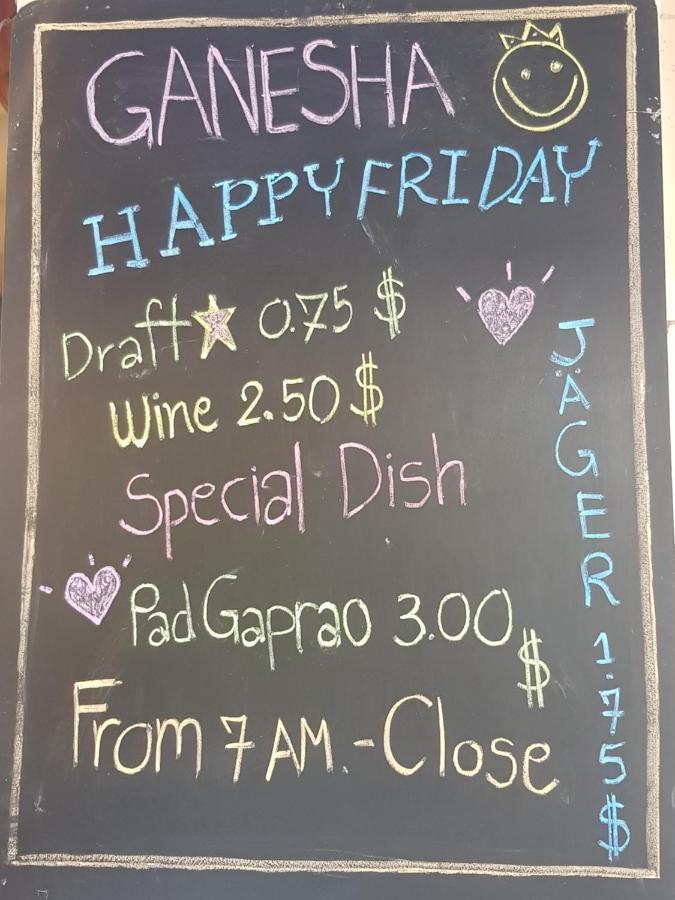 GANESHA
HAPPY FRIDAY
Draft 0.75 $
Wine 2.50 $
Special Dish
Pad Gaprao 3.00 $
From 7 AM. - Close
JÄGER 1.75 $